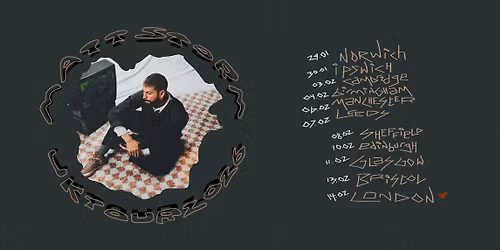 MATT STORM
UK TOUR 2026
29.01 NORWICH
30.01 IPSWICH
03.02 CAMBRIDGE
04.02 BIRMINGHAM
06.02 MANCHESTER
07.02 LEEDS
08.02 SHEFFIELD
10.02 EDINBURGH
11.02 GLASGOW
13.02 BRISTOL
14.02 LONDON